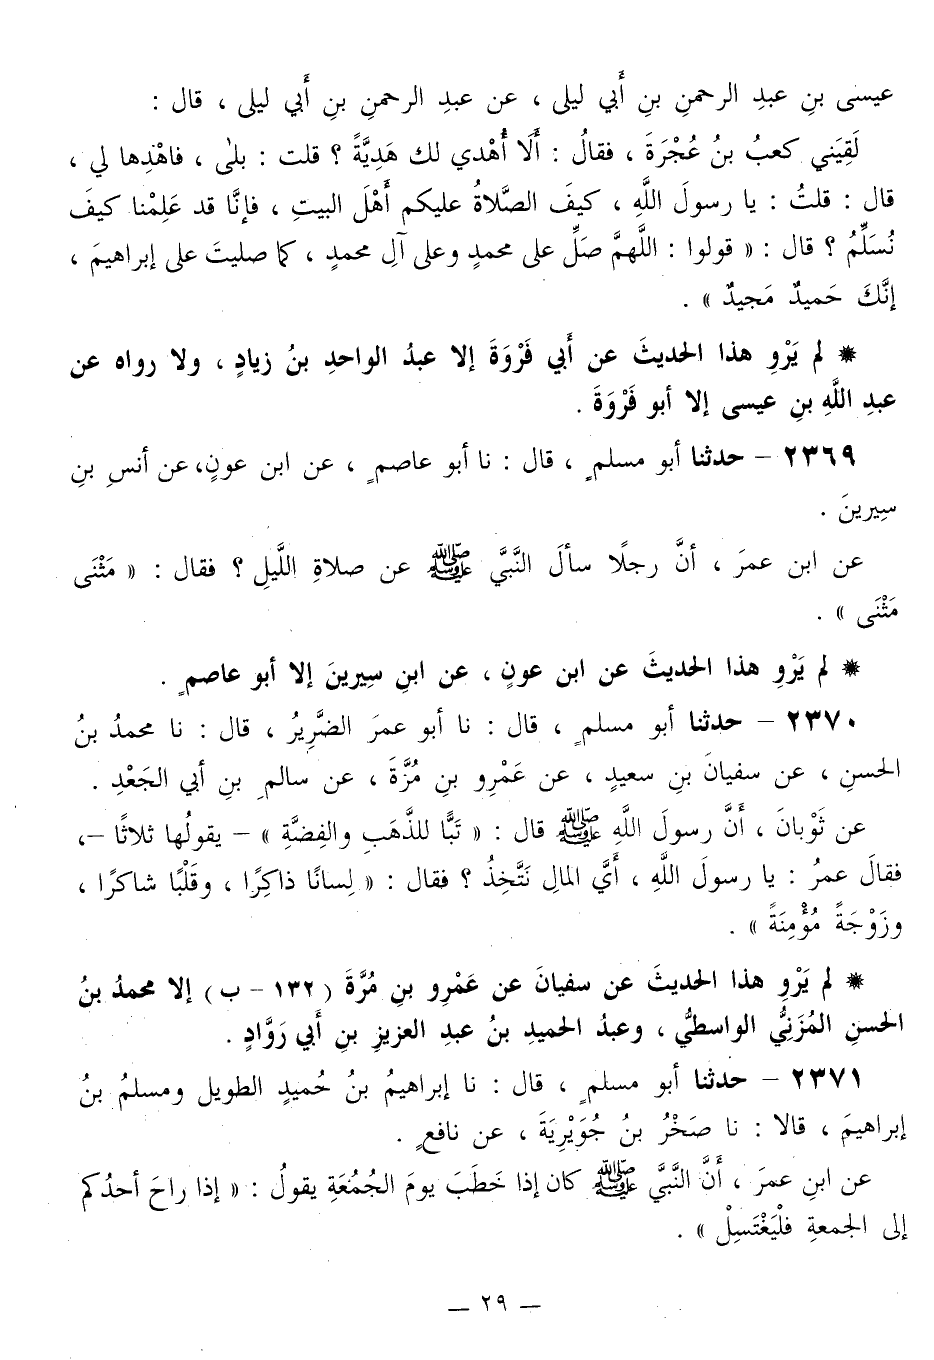 عيسى بنِ عبدِ الرحمنِ بنِ أَبي ليلى ، عن عبدِ الرحمنِ بنِ أَبي ليلى ، قال :
لَقِيَني كعبُ بنُ عُجْرَةَ ، فقالُ : أَلَا أُهْدي لك هَدِيَّةً ؟ قلت : بلىٰ ، فاهْدِها لي ،
قال : قلتُ : يا رسولَ اللَّهِ ، كيفَ الصَّلاةُ عليكم أَهْلَ البيتِ ، فإنَّا قد عَلِمْنا كيفَ
نُسَلِّمُ ؟ قال : « قولوا : اللَّهمَّ صَلِّ على محمدٍ وعلى آلِ محمدٍ ، كما صليتَ على إبراهيمَ ،
إنَّكَ حَميدٌ مَجيدٌ » .
❋ لم يَرْوِ هذا الحديثَ عن أَبي فَرْوَةَ إلا عبدُ الواحدِ بنُ زيادٍ ، ولا رواه عن
عبدِ اللَّهِ بنِ عيسى إلا أبو فَرْوَةَ .
٢٣٦٩ – حدثنا أبو مسلمٍ ، قال : نا أبو عاصمٍ ، عن ابن عونٍ، عن أنسِ بنِ
سِيرينَ .
عن ابن عمرَ ، أنَّ رجلًا سألَ النَّبيَّ ﷺ عن صلاةِ اللَّيلِ ؟ فقال : « مَثْنَى
مَثْنَى » .
❋ لم يَرْوِ هذا الحديثَ عن ابن عونٍ ، عن ابنِ سِيرينَ إلا أبو عاصمٍ .
٢٣٧٠ – حدثنا أبو مسلمٍ ، قال : نا أبو عمرَ الضَّرِيرُ ، قال : نا محمدُ بنُ
الحسنِ ، عن سفيانَ بنِ سعيدٍ ، عن عَمْرِو بنِ مُرَّةَ ، عن سالمِ بنِ أبي الجَعْدِ .
عن ثَوْبانَ ، أَنَّ رسولَ اللَّهِ ﷺ قال : « تَبًّا للذَّهَبِ والفِضَّةِ » – يقولُها ثلاثًا –،
فقالَ عمرُ : يا رسولَ اللَّهِ ، أَيَّ المالِ نَتَّخِذُ ؟ فقال : « لِسانًا ذاكِرًا ، وقَلْبًا شاكرًا ،
وزَوْجَةً مُؤْمِنَةً » .
❋ لم يَرْوِ هذا الحديثَ عن سفيانَ عن عَمْرِو بنِ مُرَّةَ (١٣٢ – ب) إلا محمدُ بنُ
الحسنِ المُزَنِيُّ الواسطيُّ ، وعبدُ الحميدِ بنُ عبدِ العزيزِ بنِ أَبي رَوَّادٍ .
٢٣٧١ – حدثنا أبو مسلمٍ ، قال : نا إبراهيمُ بنُ حُميدٍ الطويل ومسلمُ بنُ
إبراهيمَ ، قالا : نا صَخْرُ بنُ جُوَيْرِيَةَ ، عن نافعٍ .
عن ابنِ عمرَ ، أَنَّ النَّبيَّ ﷺ كان إذا خَطَبَ يومَ الجُمُعَةِ يقولُ : « إذا راحَ أحدُكم
إلى الجمعةِ فلْيَغْتَسِلْ » .
— ٢٩ —